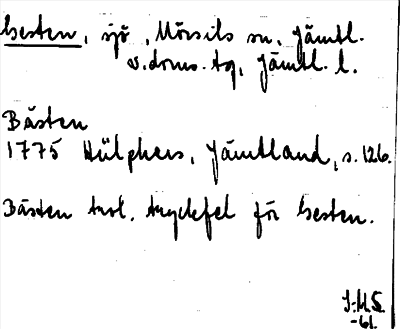 Gesten, sjö, Mörsils sn, Jämtl.
v. doms. tg, Jämtl. l.
Bästen
1775 Hülphers, Jämtland, s. 126.
Bästen trol. tryckfel för Gesten.
-61.